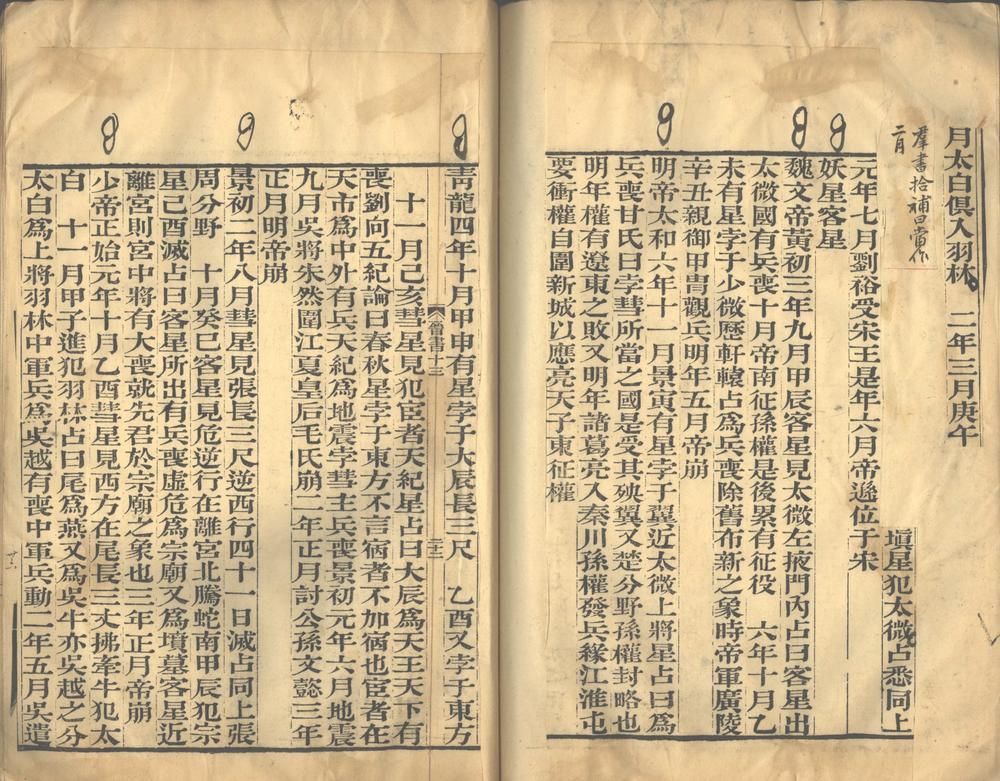 月太白俱入羽林 二年三月庚午
塡星犯太微占悉同上
羣書拾補曰當作
二月
元年七月劉裕受宋王是年六月帝遜位于宋
妖星客星
魏文帝黃初三年九月甲辰客星見太微左掖門內占曰客星出
太微國有兵喪十月帝南征孫權是後累有征役 六年十月乙
未有星孛于少微歷軒轅占爲兵喪除舊布新之象時帝軍廣陵
辛丑親御甲冑觀兵明年五月帝崩
明帝太和六年十一月景寅有星孛于翼近太微上將星占曰爲
兵喪甘氏曰孛彗所當之國是受其殃翼又楚分野孫權封略也
明年權有遼東之敗又明年諸葛亮入秦川孫權發兵緣江淮屯
要衝權自圍新城以應亮天子東征權
靑龍四年十月甲申有星孛于大辰長三尺 乙酉又孛于東方
十一月己亥彗星見犯宦者天紀星占曰大辰爲天王天下有
喪劉向五紀論曰春秋星孛于東方不言宿者不加宿也宦者在
天市爲中外有兵天紀爲地震孛彗主兵喪景初元年六月地震
九月吳將朱然圍江夏皇后毛氏崩二年正月討公孫文懿三年
正月明帝崩
景初二年八月彗星見張長三尺逆西行四十一日滅占同上張
周分野 十月癸巳客星見危逆行在離宮北騰蛇南甲辰犯宗
星己酉滅占曰客星所出有兵喪虛危爲宗廟又爲墳墓客星近
離宮則宮中將有大喪就先君於宗廟之象也三年正月帝崩
少帝正始元年十月乙酉彗星見西方在尾長三丈拂牽牛犯太
白 十一月甲子進犯羽林占曰尾爲燕又爲吳牛亦吳越之分
太白爲上將羽林中軍兵爲吳越有喪中軍兵動二年五月吳遣
晉書十三